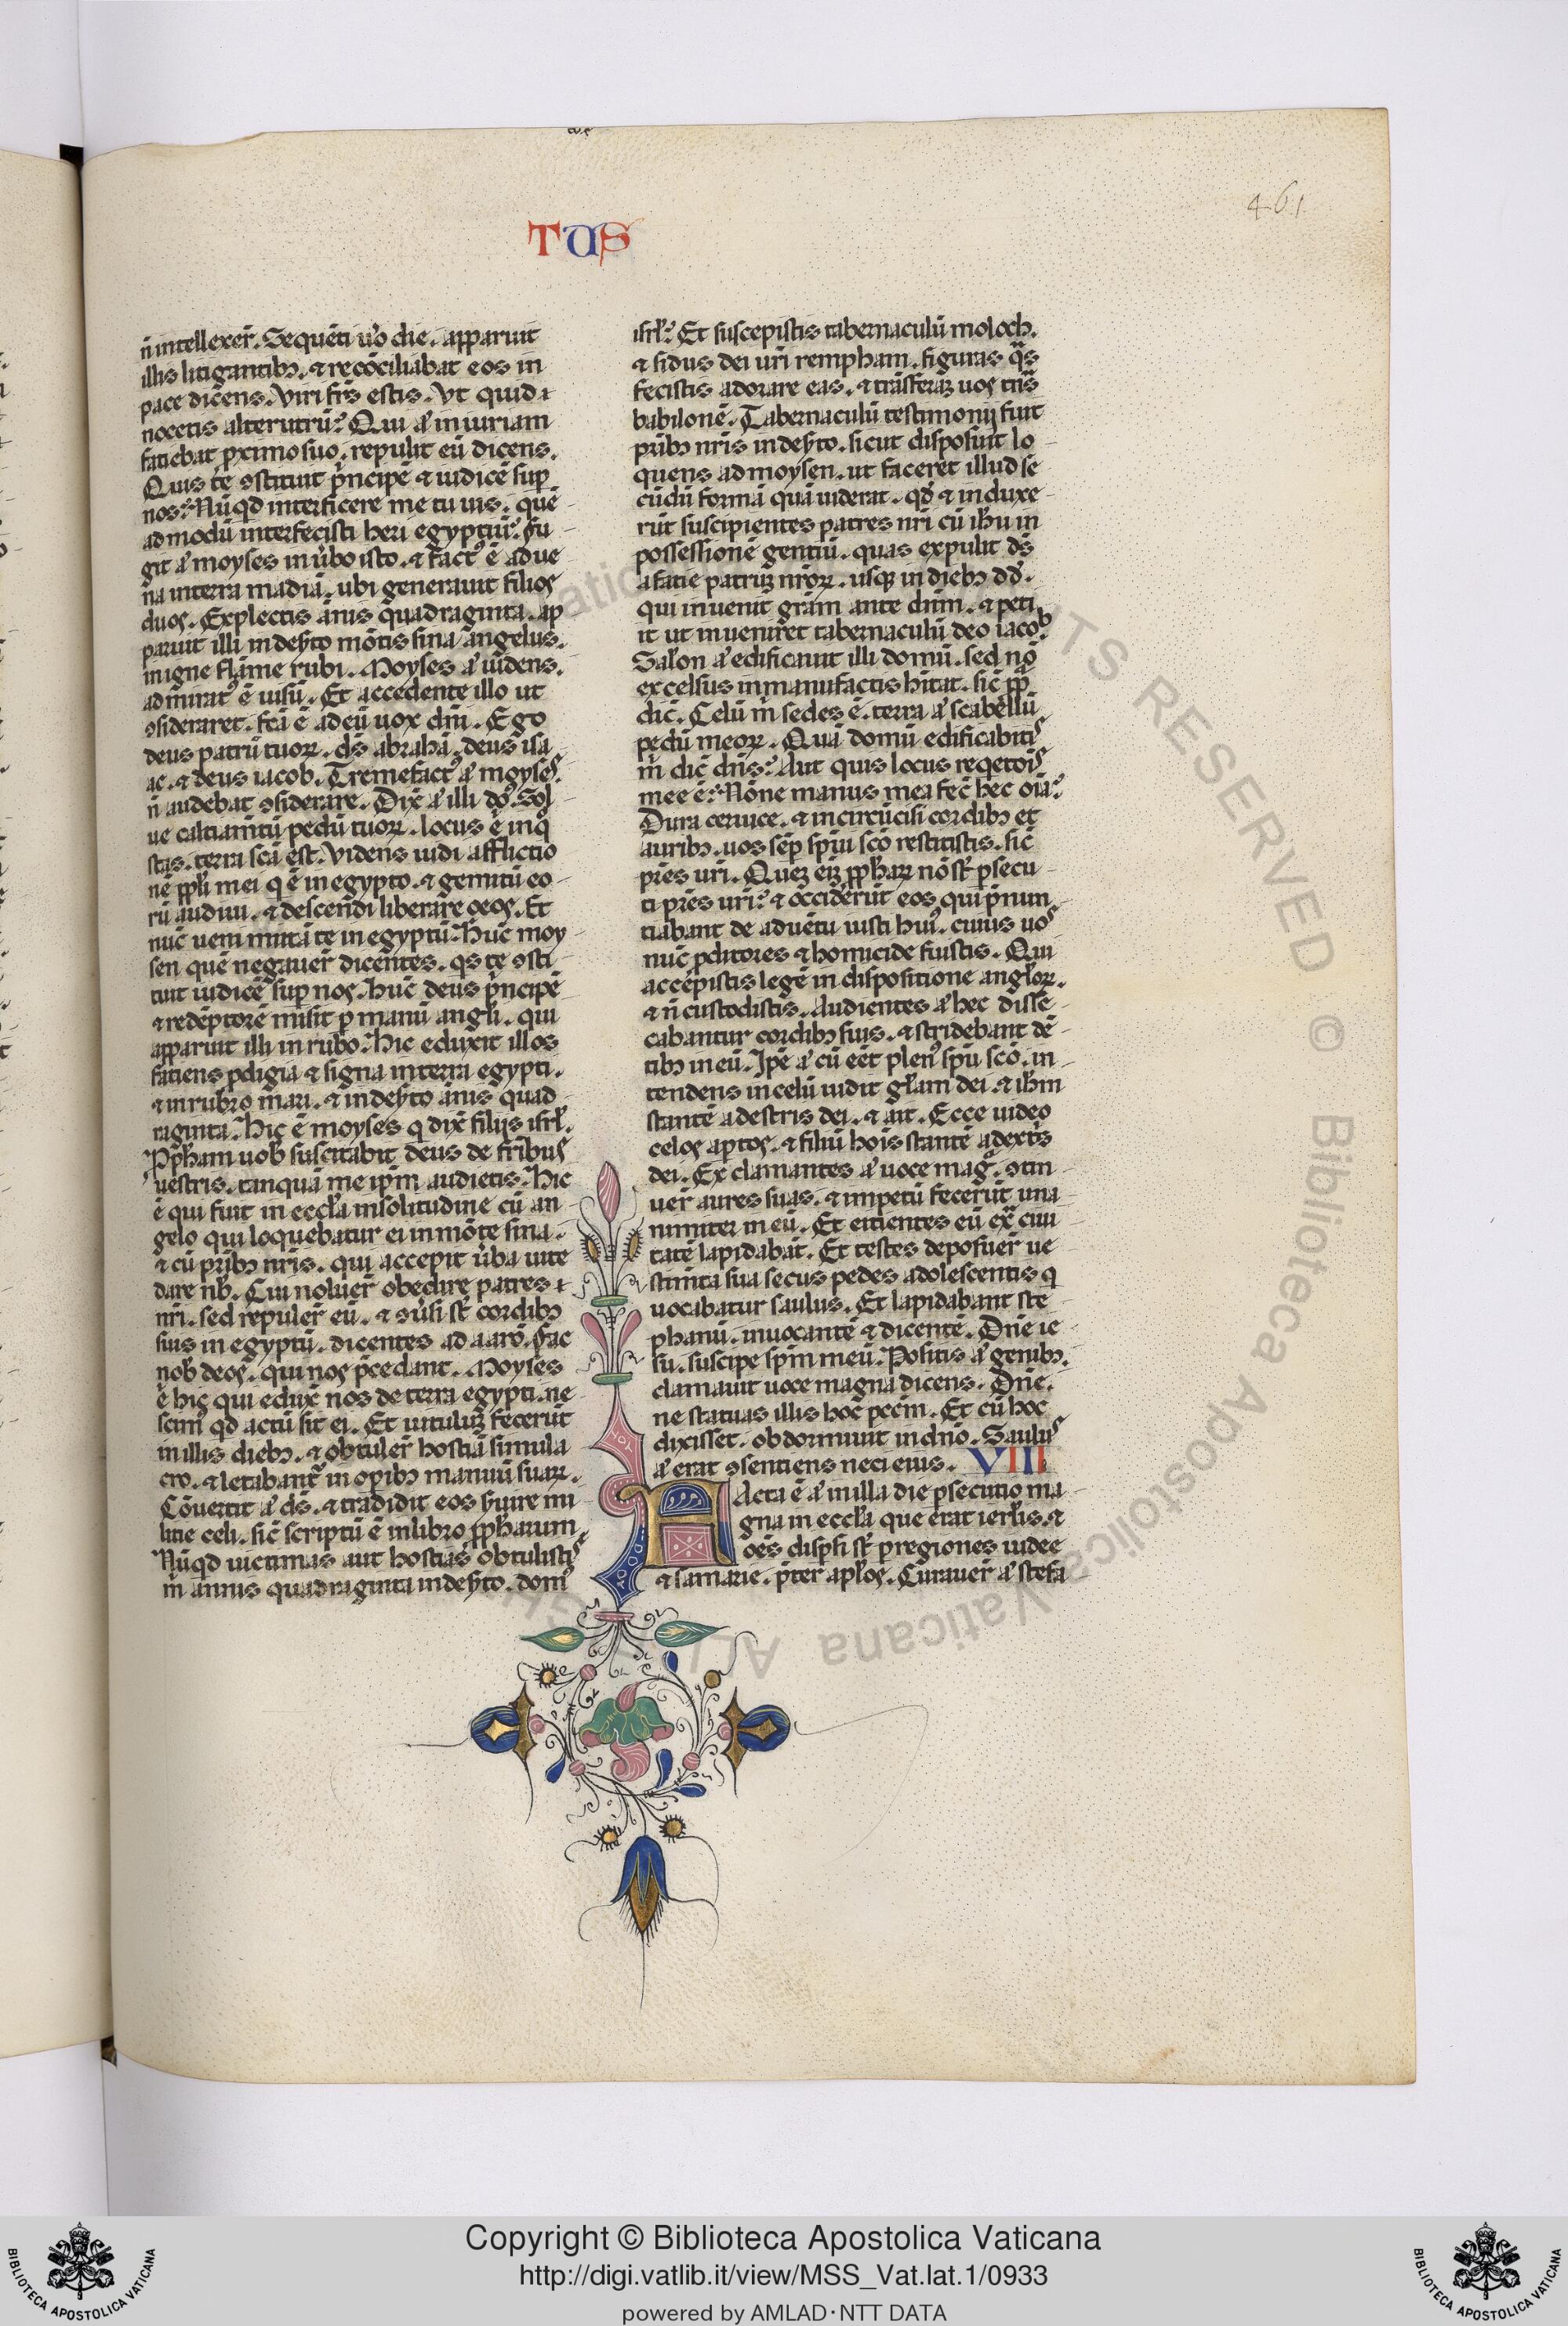 461
TUS
n̄ intellexer̄. Sequēti u͛o die. apparuit
illis litigantibꝫ. ⁊ recōciliabat eos in
pace dicēns. Viri frs̄ estis. Vt quid ⁊
nocetis alterutrū? Qui aͥ iniuriam
fatiebat pximo suo. repulit eū dicens.
Quis te ꝯstituit pͥncipē ⁊ iudicē suꝑ
nos? Nūqͥd interficere me tu uis. quē
admodū interfecisti heri egyptiū? Fu
git aͥ moyses in u͛bo isto. ⁊ factꝰ ē adue
na in terra madiā. ubi generauit filios
duos. Explectis ānis quadraginta. ap
paruit illi in deẜto mōtis sina angelus.
in igne flāme rubi. Moyses aͥ uidens.
admiratꝰ ē uisū. Et accedente illo ut
ꝯsideraret. fcā ē ad eū uox dn̄i. Ego
deus patrū tuoꝝ. ds̄ abrahā. deus isa
ac. ⁊ deus iacob. Tremefactꝰ aͥ moyses.
n̄ audebat ꝯsiderare. Dix̄ aͥ illi dn̄s. Sol
ue caltiamtū pedū tuoꝝ. locus ē in qͦ
stas. terra scā est. Videns uidi afflictio
nē ppl̄i mei q̄ ē in egypto. ⁊ gemitū eo
rū audiui. ⁊ descendi liberare eos. Et
nūc ueni mittā te in egyptū. Hūc moy
sen quē negauer̄ dicentes. qͥs te ꝯsti
tuit iudicē suꝑ nos. hūc deus pͥncipē
⁊ redēptorē misit ꝑ manū angl̄i. qui
apparuit illi in rubo. Hic eduxit illos
fatiens ꝓdigia ⁊ signa in terra egypti.
⁊ in rubro mari. ⁊ in deẜto ānis quad
raginta. Hic ē moyses q̄ dix̄ filijs isrl̄.
Ppħam uob̄ suscitabit deus de frībus
uestris. tanquā me ip̄m audietis. Hic
ē qui fuit in eccl̄a in solitudine cū an
gelo qui loquebatur ei in mōte sina.
⁊ cū prībꝫ nrīs. qui accepit u͛ba uite
dare nb̄. Cui noluer̄ obedire patres ⁊
nrī. sed repuler̄ eū. ⁊ ꝯuͥsi st̄ cordibꝫ
suis in egyptū. dicentes ad aarō. Fac
nob̄ deos. qui nos p̄cedant. Moyses
ē hic qui edux̄ nos de terra egypti. ne
scim̄ qd̄ actū sit ei. Et uitulūꝫ fecerūt
in illis diebꝫ. ⁊ obtuler̄ hostiā simula
cro. ⁊ letabant̄ in oꝑibꝫ manuū suaꝝ.
Cōuertit aͥ ds̄. ⁊ tradidit eos ẜuire mi
litie celi. sic̄ scriptū ē in libro ppħarum
Nūqͥd uictimas aut hostias obtulistis
m̄ annis quadraginta in deẜto. domꝰ
isrl̄? Et suscepistis tabernaculū moloch.
⁊ sidus dei urī rempham. figuras qͣs
fecistis adorare eas. ⁊ trāsferaꝫ uos trn̄s
babilonē. Tabernaculū testimonij fuit
prībꝫ nrīs in deẜto. sicut disposuit lo
quens ad moysen. ut faceret illud se
cūdū formā quā uiderat. qd̄ ⁊ induxe
rūt suscipientes patres nrī cū iħu in
possessionē gentiū. quas expulit ds̄
a fatie patruꝫ nrōꝝ. usqꝫ in diebꝫ dd̄.
qui inuenit grām ante dn̄m. ⁊ peti
it ut inueniret tabernaculū deo iacob.
Salōn aͥ edificauit illi domū. sed nō
excelsus in manufactis hītat. sic̄ ppͣ
dic̄. Celū m̄ sedes ē. terra aͥ scabellū
pedū meoꝝ. Quā domū edificabitis
m̄ dic̄ dn̄s? Aut quis locus reqͥetōis
mee ē? Nōne manus mea fec̄ hec oīa?
Dura ceruice. ⁊ incircūcisi cordibꝫ et
auribꝫ. uos sēꝑ spūi scō restitistis. sic̄
pr̄es urī. Queꝫ eīꝫ ppħaꝝ nō st̄ ꝑsecu
ti pr̄es urī? ⁊ occiderūt eos qui p̄nun
tiabant de aduētu iusti huiꝰ. cuius uos
nūc ꝓditores ⁊ homicide fuistis. Qui
accepistis legē in dispositione angl̄oꝝ.
⁊ n̄ custodistis. Audientes aͥ hec disse
cabantur cordibꝫ suis. ⁊ stridebant dē
tibꝫ in eū. Ip̄e aͥ cū eēt plenꝰ spū scō. in
tendens in celū uidit gl̄am dei. ⁊ iħm
stantē a destris dei. ⁊ ait. Ecce uideo
celos aꝑtos. ⁊ filiū hoīs stantē a dext͛s
dei. Exclamantes aͥ uoce magͣ. ꝯtin
uer̄ aures suas. ⁊ impetū fecerūt una
nimiter in eū. Et eitientes eū exͣ ciui
tatē lapidabāt. Et testes deposuer̄ ue
stimta sua secus pedes adolescentis q̄
uocabatur saulus. Et lapidabant ste
phanū. inuocantē ⁊ dicentē. Dn̄e ie
su. suscipe spm̄ meū. Positis aͥ genibꝫ.
clamauit uoce magna dicens. Dn̄e.
ne statuas illis hoc pccm̄. Et cū hoc
dixisset. obdormiuit in dn̄o. Saulus
aͥ erat ꝯsentiens neci eius. VIII
FActa ē aͥ in illa die ꝑsecutio ma
gna in eccl̄a que erat ierl̄is. ⁊
oēs dispͥsi st̄ ꝑ regiones iudee
⁊ samarie. p̄ter apl̄os. Curauer̄ aͥ stefa
Copyright © Biblioteca Apostolica Vaticana
http://digi.vatlib.it/view/MSS_Vat.lat.1/0933
powered by AMLAD·NTT DATA
BIBLIOTECA APOSTOLICA VATICANA
BIBLIOTECA APOSTOLICA VATICANA